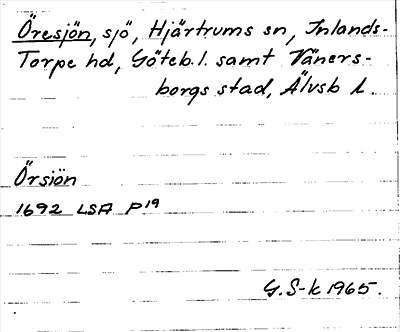 Öresjön, sjö, Hjärtrums sn, Inlands-
Torpe hd, Göteb. l. samt Väners-
borgs stad, Älvsb l.
Örsiön
1692 LSA P19
G. S-k 1965.